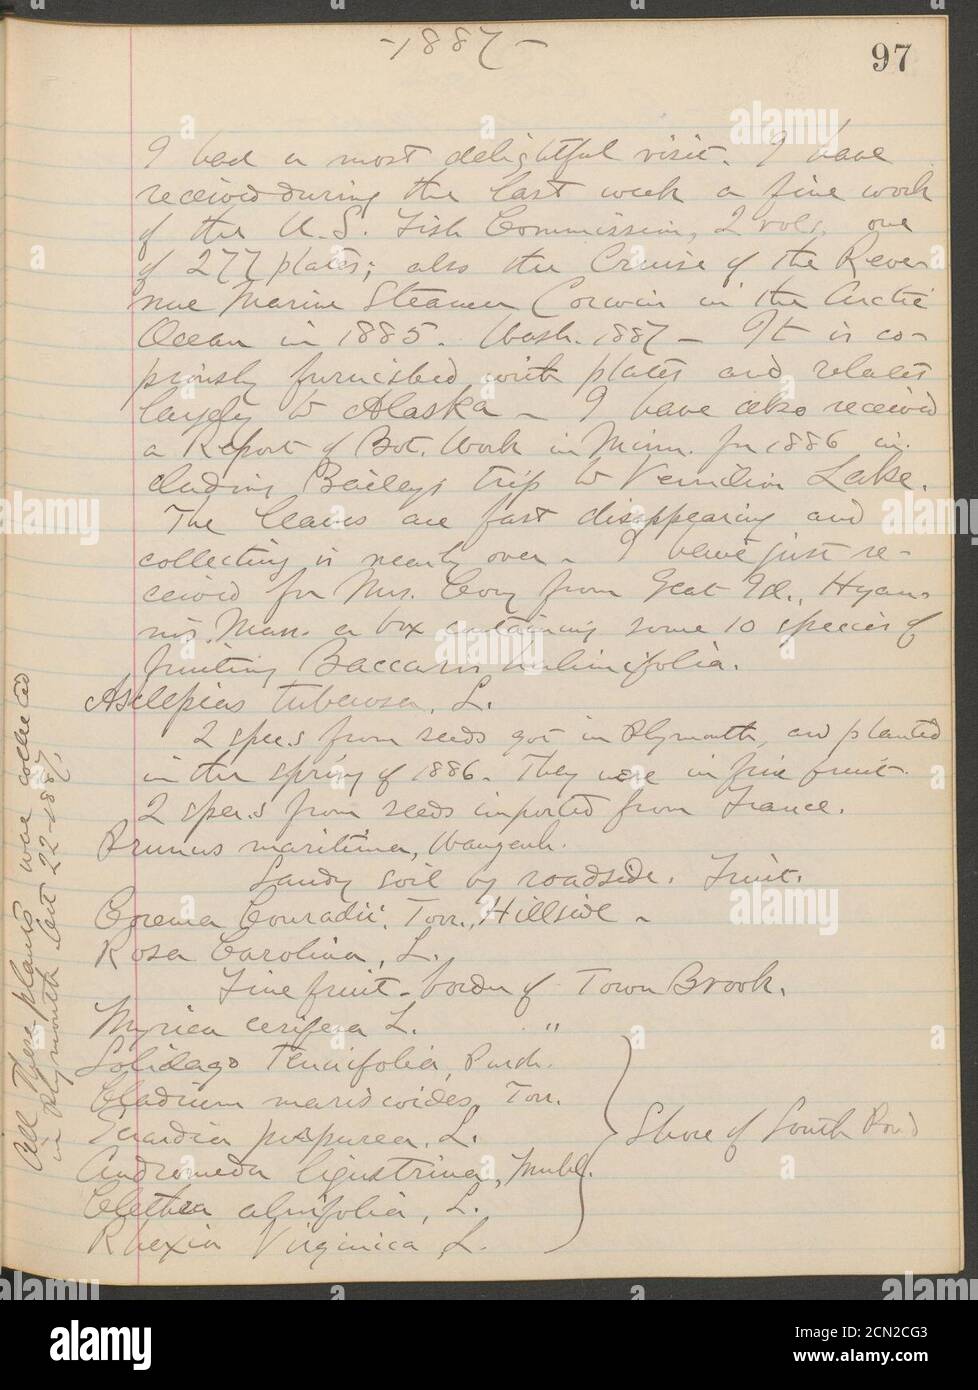 -1887-
97
I had a most delightful visit. I have
received during the last week a fine work
of the U.S. Fish Commission, 2 vols. one
of 277 plates; also the Cruise of the Reve-
nue Marine Steamer Corwin in the Arctic
Ocean in 1885. Wash. 1887 - It is co-
piously furnished with plates and relates
largely to Alaska - I have also received
a Report of Bot. Work in Minn. for 1886 in-
cluding Bailey's trip to Vermilion Lake.
The leaves are fast disappearing and
collecting is nearly over - I have just re-
ceived for Mrs. from Great Id., Hyan-
nis, Mass. a box containing some 10 species of
fruiting Baccaris halimifolia.
Asclepias tuberosa, L.
2 spec.s from seeds got in Plymouth, and planted
in the spring of 1886. They were in fine fruit.
2 spec.s from seeds imported from France.
Prunus maritima, Wangenh.
Sandy soil by roadside. Fruit.
Corema Conradii, Torr., Hillside -
Rosa Carolina, L.
Fine fruit - border of Town Brook.
Myrica cerifera L. "
Solidago tenuifolia, Pursh.
Cladium mariscoides, Torr.
Gerardia purpurea, L.
Andromeda ligustrina, Muhl.
Clethra alnifolia, L.
Rhexia Virginica L.
Shore of South Pond
All these plants were collected
in Plymouth Oct 22-1887.
alamy
Image ID: 2CN2CG3
www.alamy.com